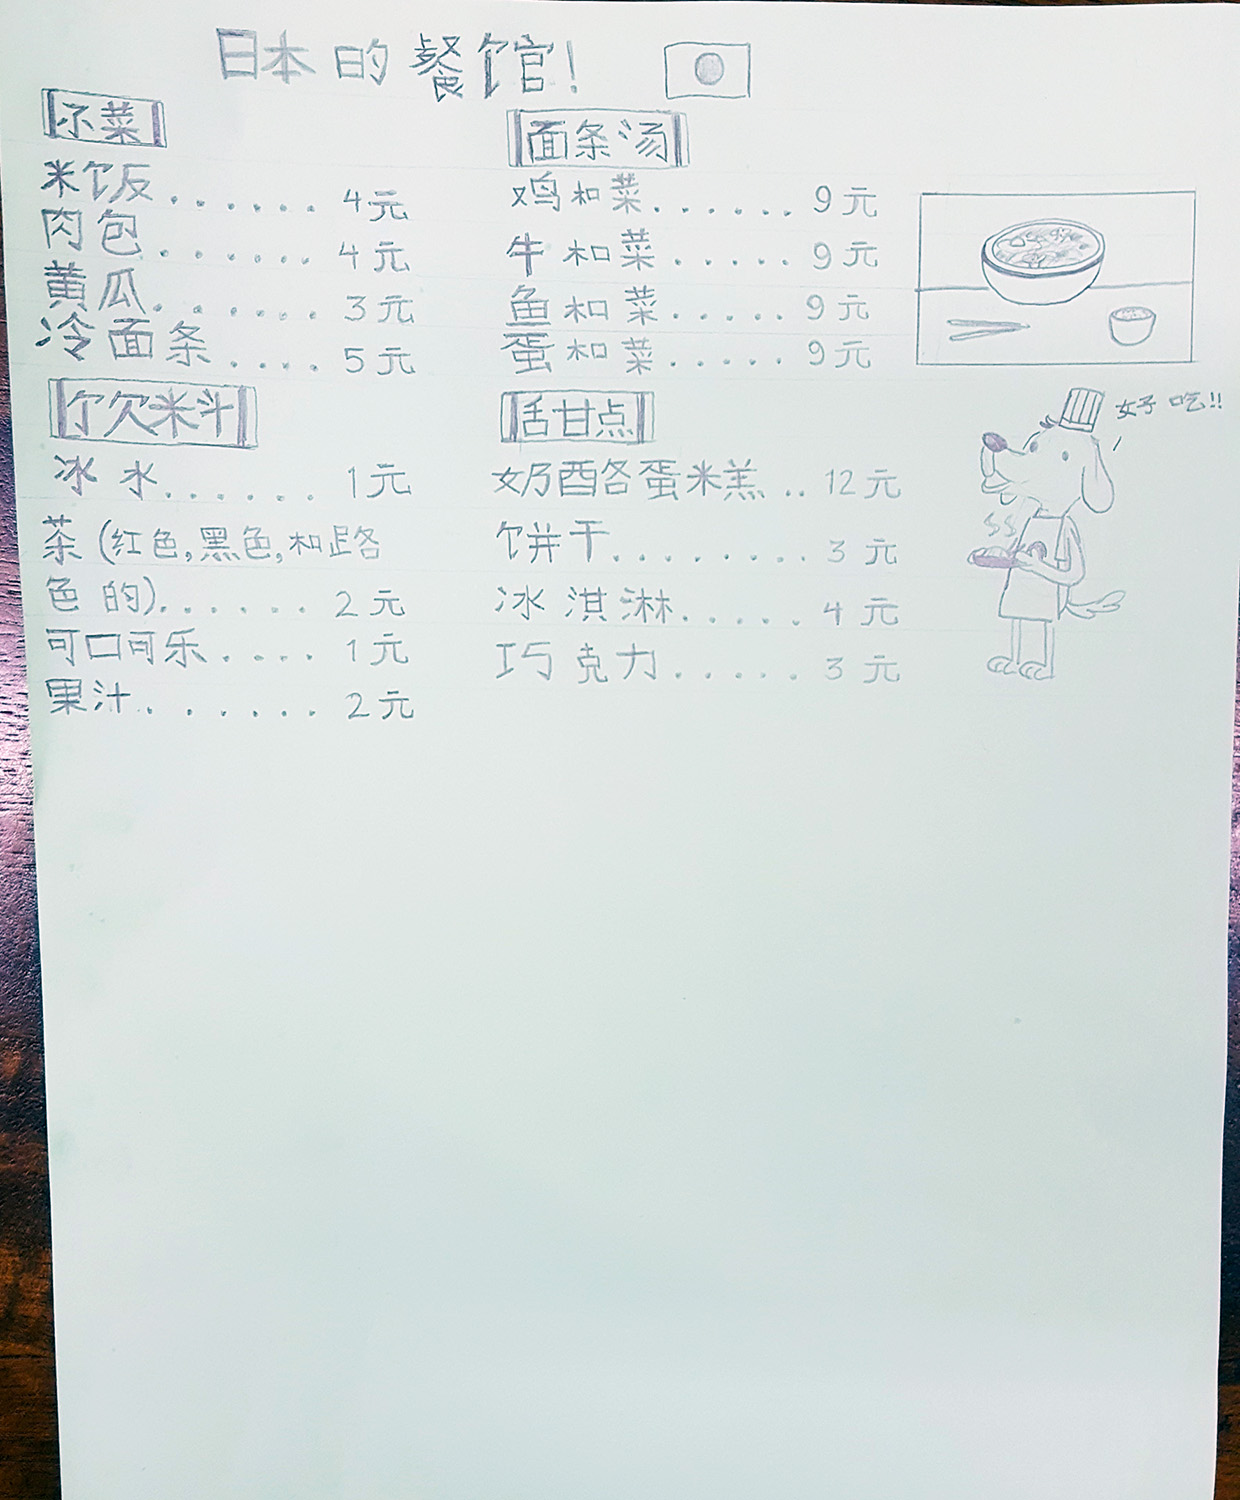 日本的餐馆!
凉菜
米饭....... 4元
肉包....... 4元
黄瓜....... 3元
冷面条.... 5元
饮料
冰水...... 1元
茶(红色,黑色,和路
色的)...... 2元
可口可乐.... 1元
果汁...... 2元
面条汤
鸡和菜...... 9元
牛和菜..... 9元
鱼和菜..... 9元
蛋和菜..... 9元
甜点
奶酪蛋糕.. 12元
饼干........ 3元
冰淇淋..... 4元
巧克力..... 3元
好吃!!